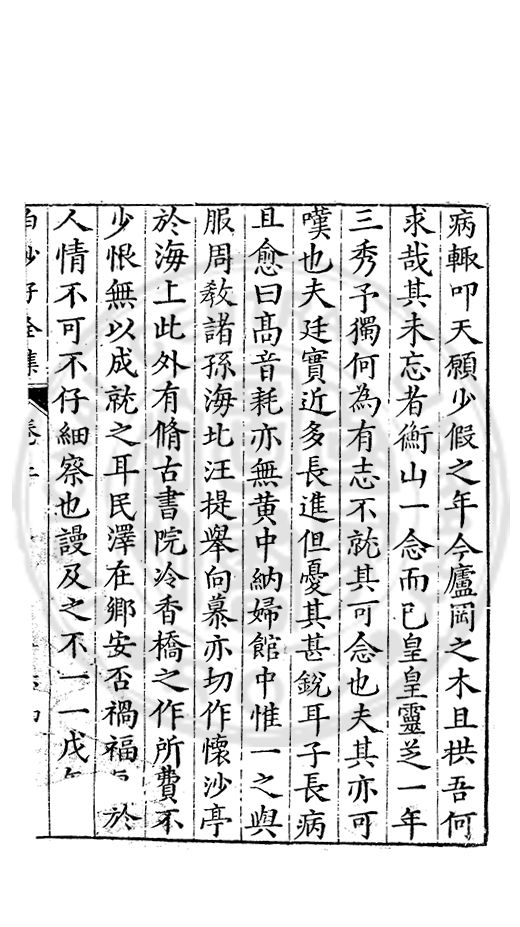 病輙叩天願少假之年今廬岡之木且拱吾何
求哉其未忘者衡山一念而已皇皇靈芝一年
三秀予獨何為有志不就其可念也夫其亦可
嘆也夫廷實近多長進但憂其甚銳耳子長病
且愈曰髙音耗亦無黄中納婦館中惟一之與
服周敎諸孫海北汪提舉向慕亦切作懷沙亭
於海上此外有脩古書院冷香橋之作所費不
少恨無以成就之耳民澤在鄉安否禍福於
人情不可不仔細察也謾及之不一一戊
白沙子全集 卷